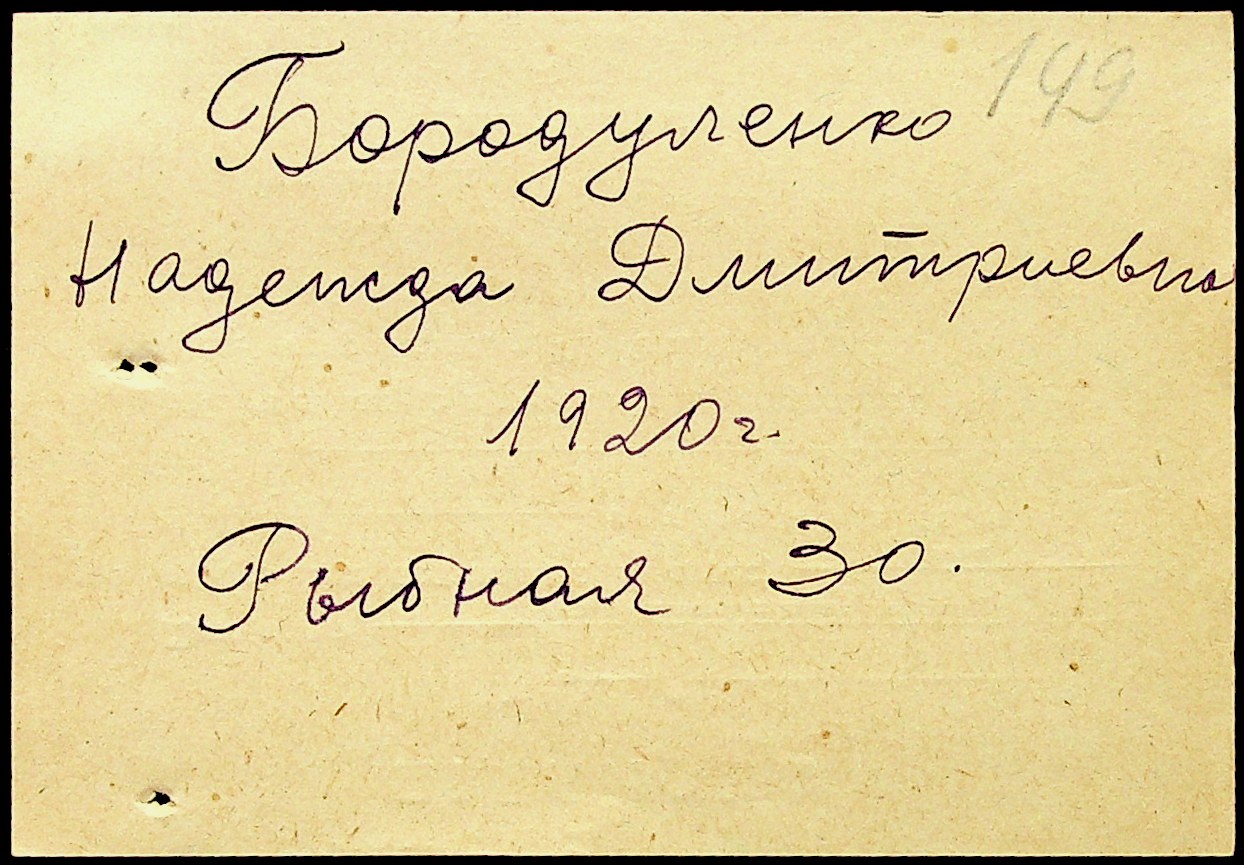 149
Бородуленко
Надежда Дмитриевна
1920г.
Рыбная 30.